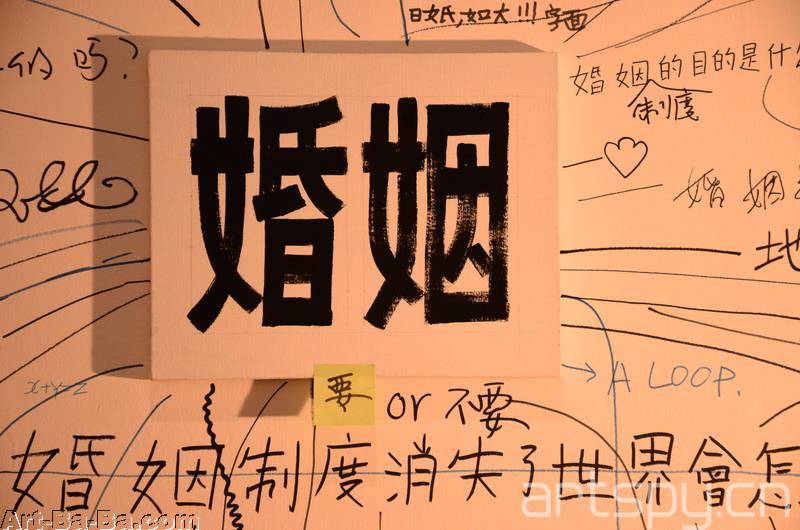 日婚,如大川字面
们吗?
婚姻的目的是什
制度
婚姻
婚姻
地
X+Y=Z
A LOOP.
要 or 不要
婚姻制度消失了世界會怎
artspy.cn
Art-Ba-Ba.com